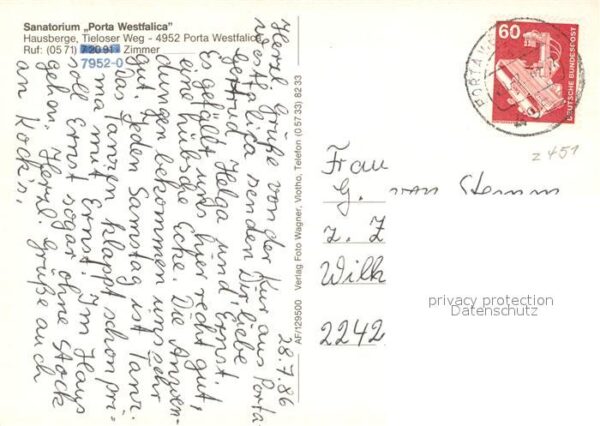 Sanatorium „Porta Westfalica"
Hausberge, Tieloser Weg - 4952 Porta Westfalica
Ruf: (05 71) 7 20 91 - Zimmer
7952-0
28.7.86
Herzl. Grüße von der Kur aus Porta
Westfalica senden Dir liebe
Gertrud, Helga und Ernst.
Es gefällt uns hier recht gut,
eine hübsche Ecke. Die Anwen-
dungen bekommen uns sehr
gut. Jeden Samstag ist Tanz.
Das Tanzen klappt schon pri-
ma mit Ernst. Im Haus
soll Ernst sogar ohne Stock
gehen. Herzl. Grüße auch
an Kock's.
AF/129500 Verlag Foto Wagner, Vlotho, Telefon (0 57 33) 82 33
60
DEUTSCHE BUNDESPOST
PORTA W
z 451
Frau
G. van Stemm
z. Z
Wilh
2242
privacy protection
Datenschutz